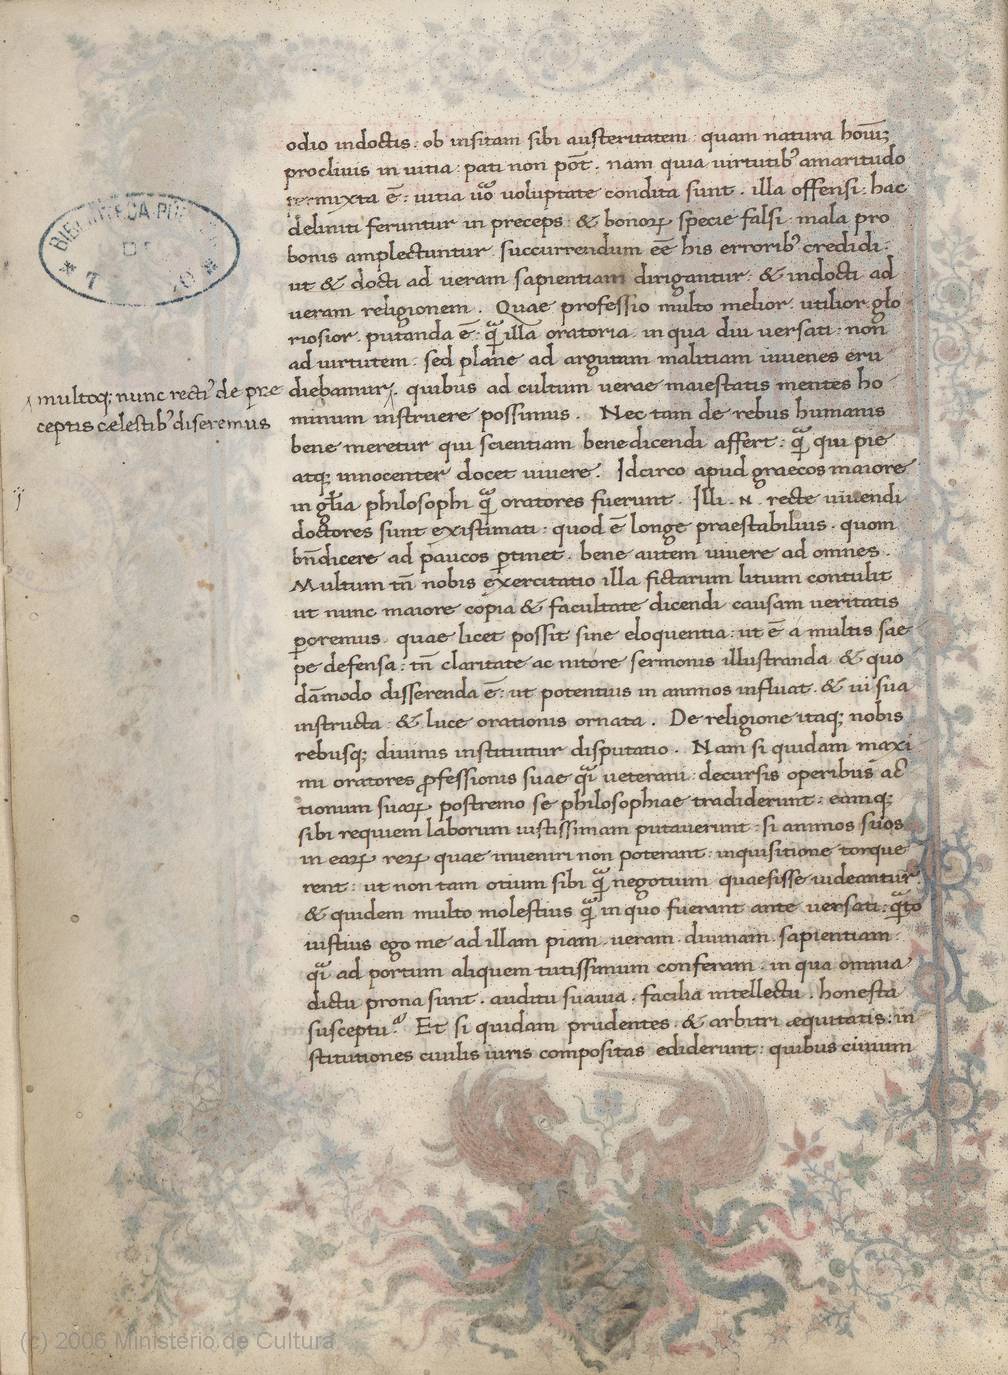 odio indoctis : ob insitam sibi austeritatem : quam natura hoĩũ
proclivis in vitia : pati non põt . nam quia virtutib᾽ amaritudo
permixta ẽ : vitia ůo voluptate condita sunt . illa offensi : hac
deliniti feruntur in preceps : & bonoꝝ specie falsi : mala pro
bonis amplectuntur . succurrendum eẽ his errorib᾽ credidi :
ut & docti ad veram sapientiam dirigantur : & indocti ad
veram religionem . Quae professio multo melior . utilior . glo
riosior . putanda ẽ : q̃ illa oratoria . in qua diu versati : non
ad virtutem . sed plane ad argutam malitiam iuvenes eru
multoq; nunc recti᾽ de prae
ceptis caelestib᾽ diseremus
diebamur . quibus ad cultum verae maiestatis mentes ho
minum instruere possimus . Nec tam de rebus humanis
bene meretur qui scientiam bene dicendi affert : q̃ qui pie
atq; innocenter docet vivere . Idcirco apud graecos maiore
in gl̃ia philosophi q̃ oratores fuerunt . Illi . N . recte vivendi
doctores sunt existimati : quod ẽ longe praestabilius . quom
bñdicere ad paucos ꝑtinet . bene autem vivere ad omnes .
Multum tñ nobis exercitatio illa fictarum litium contulit
ut nunc maiore copia & facultate dicendi causam veritatis
ꝑoremus . quae licet possit sine eloquentia : ut ẽ a multis sae
pe defensa : tñ claritate ac nitore sermonis illustranda & quo
dãmodo disserenda ẽ : ut potentius in animos influat . & vi sua
instructa . & luce orationis ornata . De religione itaq; nobis
rebusq; divinis instituitur disputatio . Nam si quidam maxi
mi oratores ꝓfessionis suae q̃i veterani : decursis operibus ac
tionum suaꝝ postremo se philosophiae tradiderunt : eamq;
sibi requiem laborum iustissimam putaverunt : si animos suos
in eaꝝ reꝝ quae inveniri non poterant : inquisitione torque
rent : ut non tam otium sibi q̃ negotium quaesisse videantur .
& quidem multo molestius q̃ in quo fuerant ante versati : q̃to
iustius ego me ad illam piam . veram . divinam . sapientiam :
q̃i ad portum aliquem tutissimum conferam . in qua omnia
dictu prona sunt . auditu suavia . facilia intellectu . honesta
susceptu . Et si quidam prudentes . & arbitri aequitatis : in
stitutiones civilis iuris compositas ediderunt : quibus civium
BIBLIOTECA
(c) 2006 Ministério de Cultura